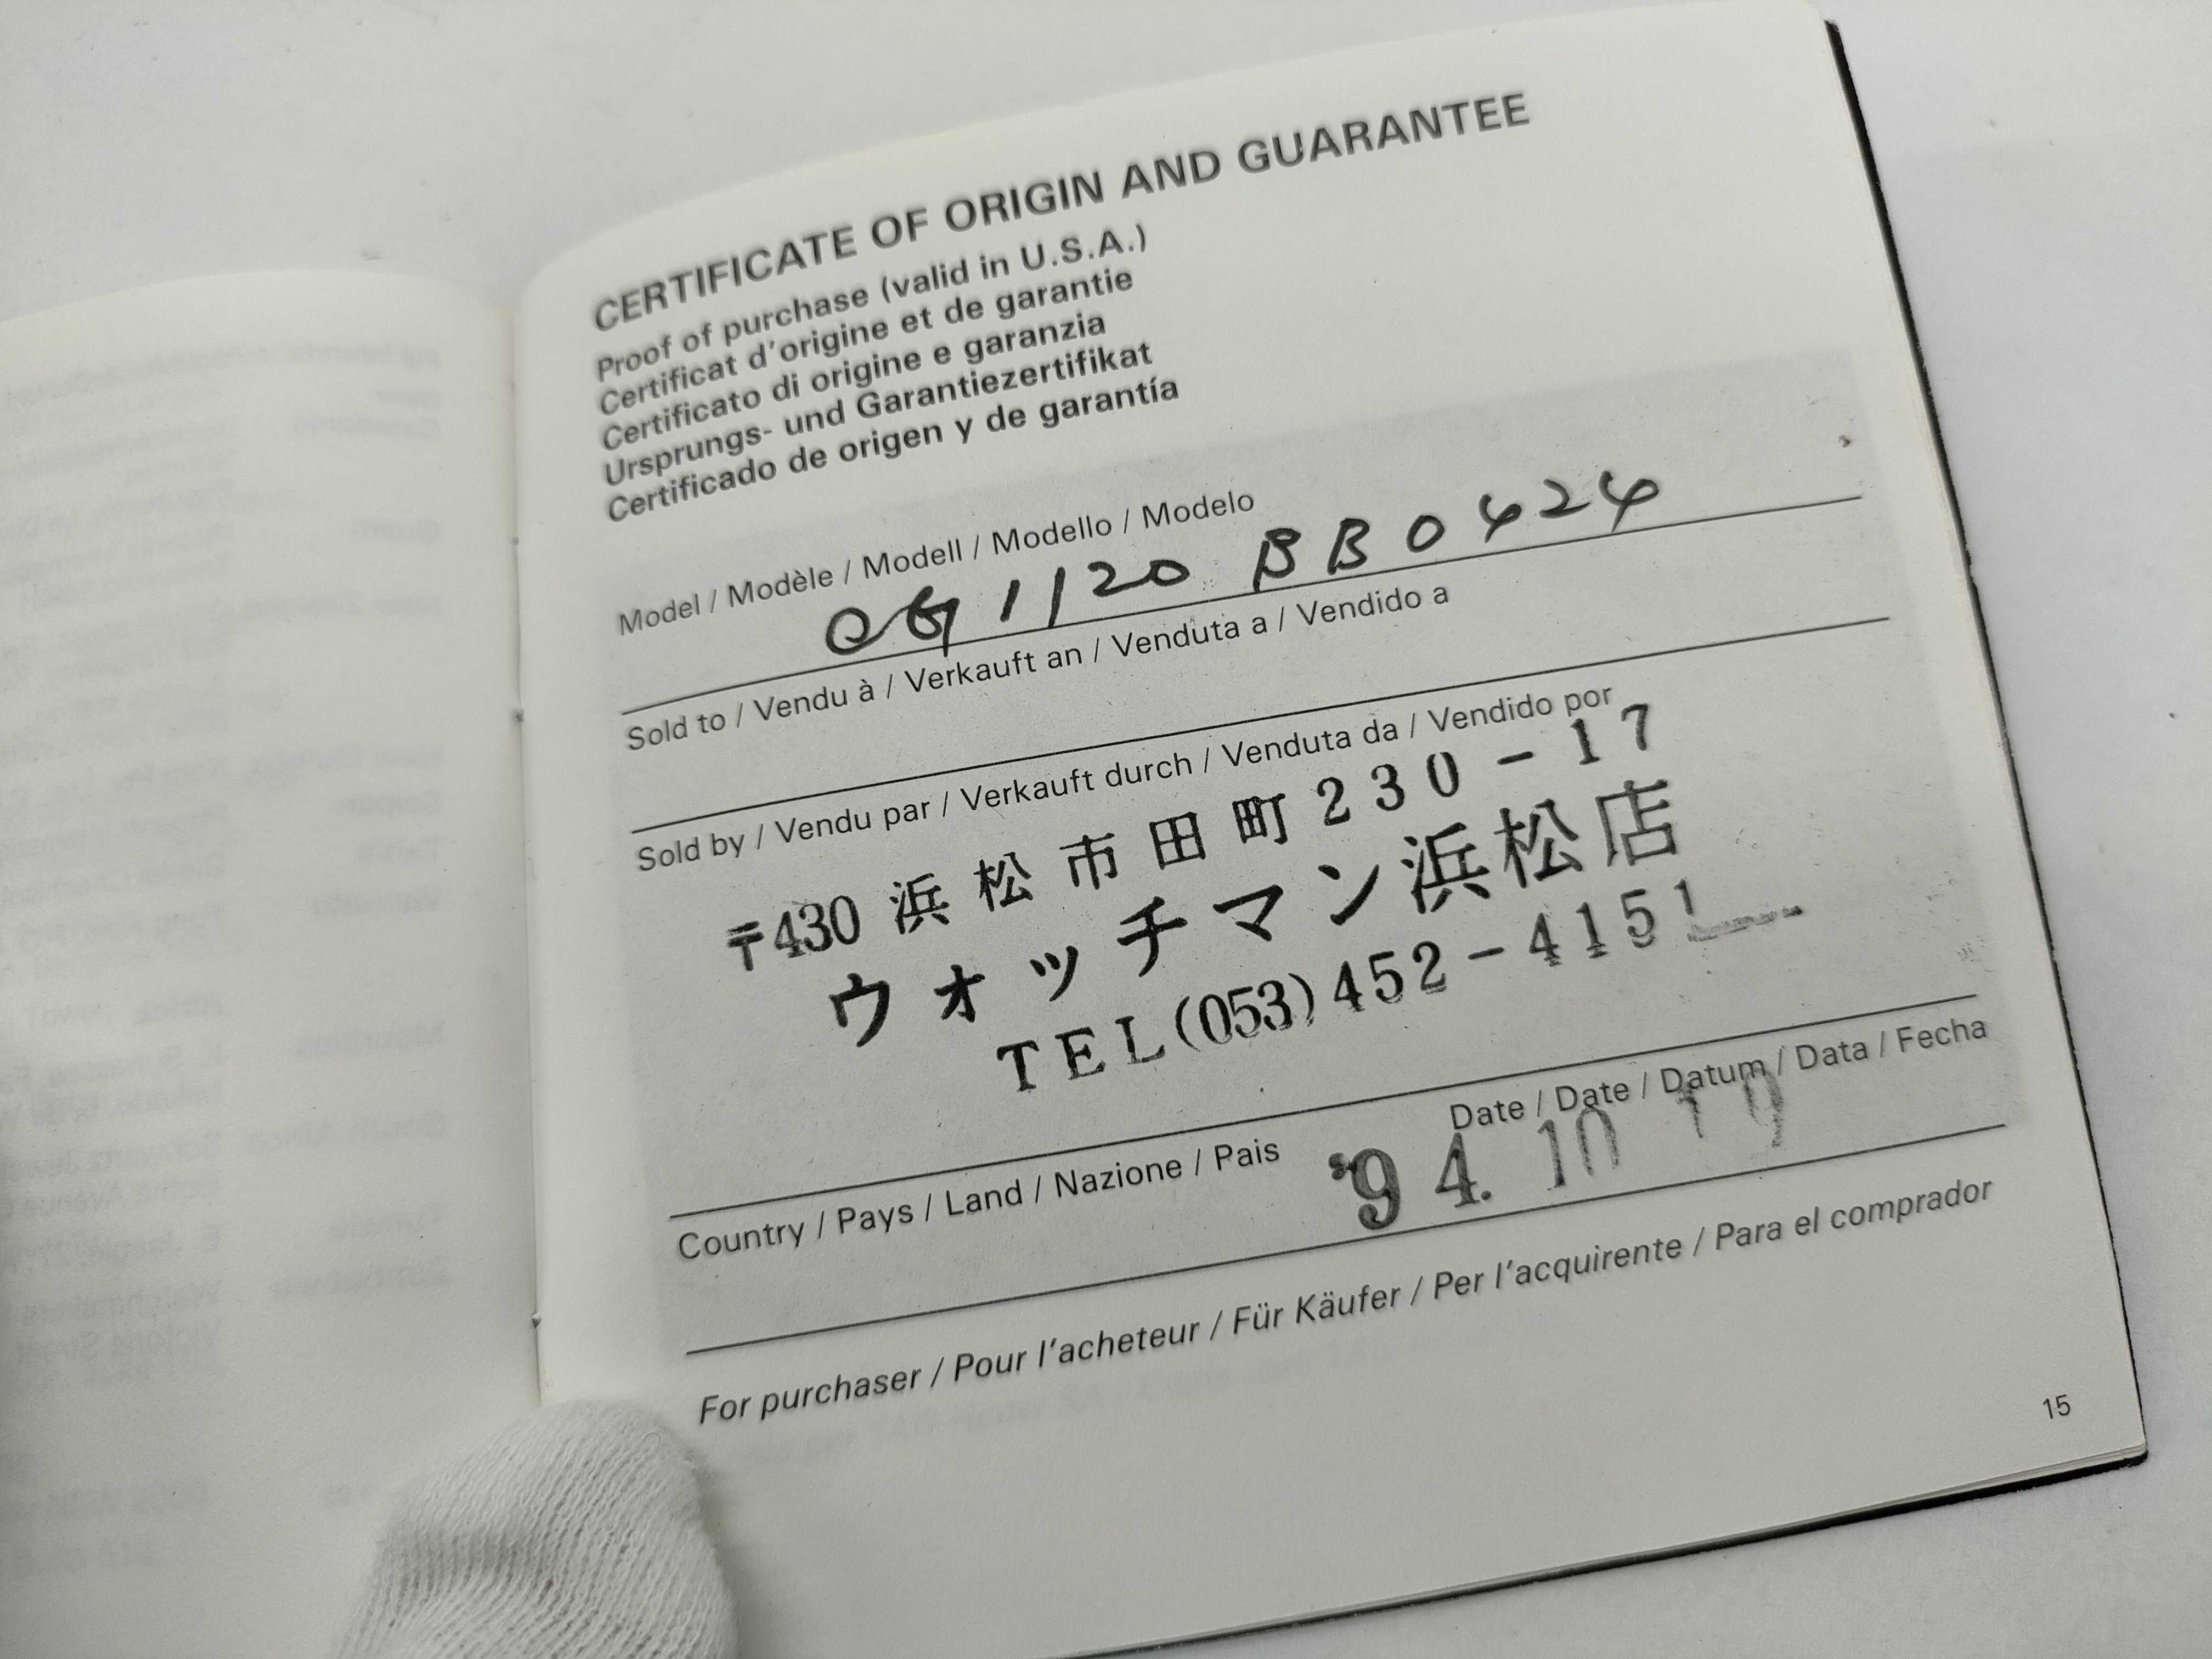 CERTIFICATE OF ORIGIN AND GUARANTEE
Proof of purchase (valid in U.S.A.)
Certificat d'origine et de garantie
Certificato di origine e garanzia
Ursprungs- und Garantiezertifikat
Certificado de origen y de garantía
Model / Modèle / Modell / Modello / Modelo
QG1120 BB0424
Sold to / Vendu à / Verkauft an / Venduta a / Vendido a
Sold by / Vendu par / Verkauft durch / Venduta da / Vendido por
〒430 浜松市田町230-17
ウォッチマン浜松店
TEL(053)452-4151
Date / Date / Datum / Data / Fecha
'94.10 19
Country / Pays / Land / Nazione / Pais
For purchaser / Pour l'acheteur / Für Käufer / Per l'acquirente / Para el comprador
15